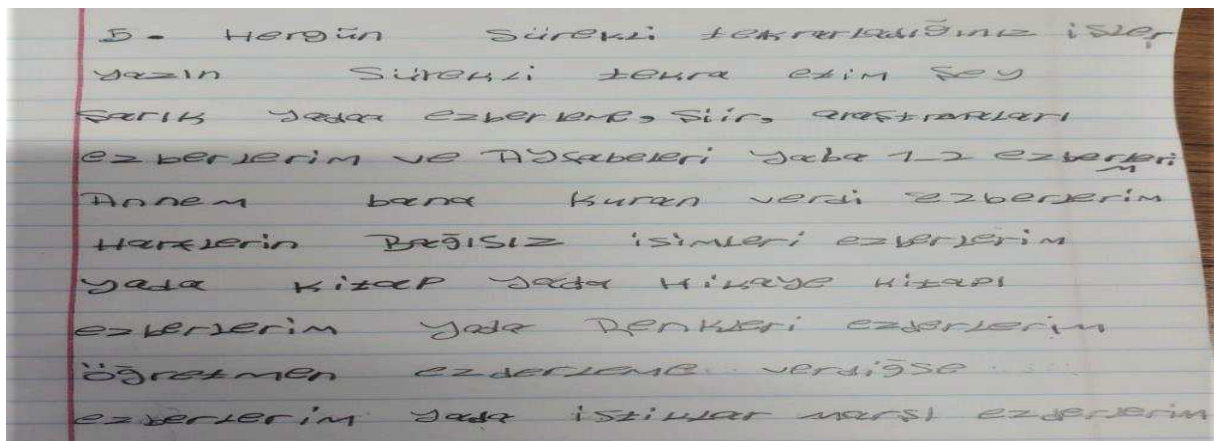 5- Hergün Sürekli tekrarladığınız işler
yazın Sürekli tekra etim şey
şarık yada ezberleme, Şiir, araştırmaları
ezberlerim ve Aysabeleri yaba 1-2 ezberleri
m
Annem bana Kuran verdi ezberlerim
Harflerin Bağısız isimleri ezberlerim
yada Kitap yada Hikaye Kitapı
ezberlerim yada Renkleri ezberlerim
öğretmen ezberleme verdiğse
ezberlerim yada istiklar marşı ezberlerim